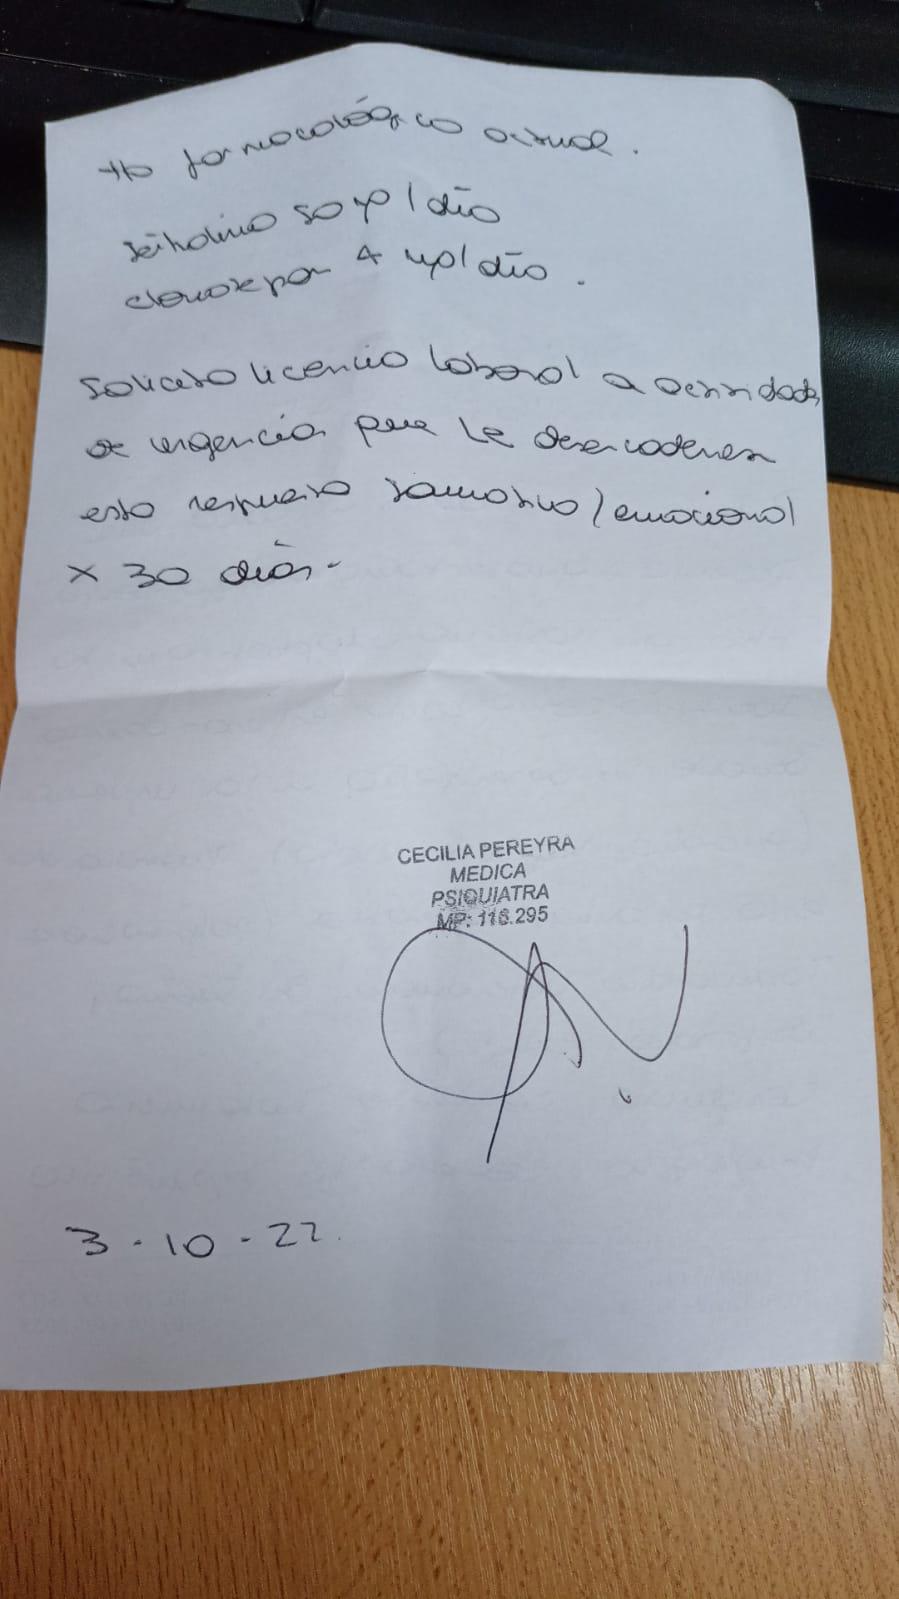 tto farmacológico actual.
sertralina 50 mg/día
clonazepam 4 mg/día.
Solicito licencia laboral a actividades
de urgencia pues le desencadenan
esta respuesta somatiza/emocional
x 30 días.
CECILIA PEREYRA
MEDICA
PSIQUIATRA
MP: 116.295
3-10-22.